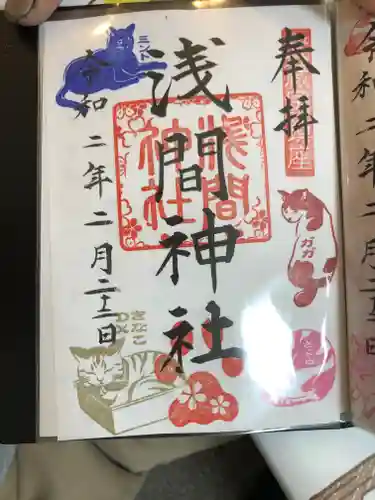 奉拝
浅間神社
浅間神社
令和二年二月二十二日
ミント
ガガ
きなこ
DX